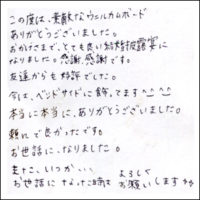 この度は、素敵なウェルカムボード
ありがとうございました。
おかげさまで、とても良い結婚披露宴に
なりました。感謝、感謝です。
友達からも好評でした。
今は、ベッドサイドに飾ってます^_^
本当に本当に、ありがとうございました。
頼んで良かったです。
お世話に、なりました。
またこ、いつか、、、
お世話になった時は よろしく
お願いします